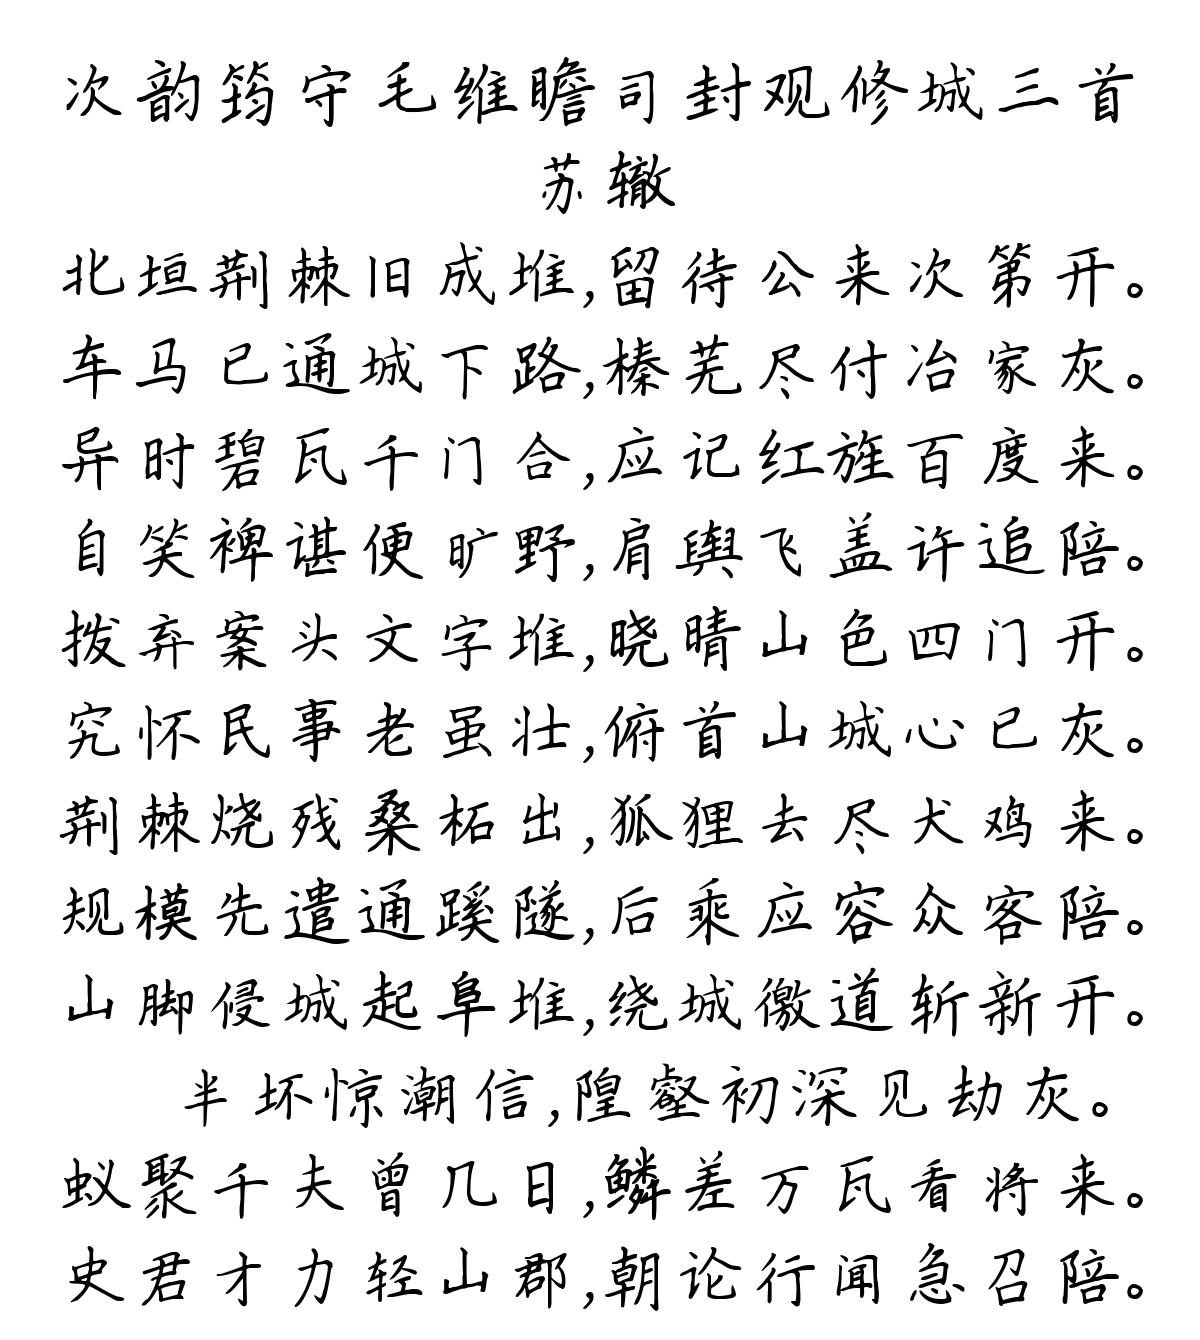 次韵筠守毛维瞻司封观修城三首
苏辙
北垣荆棘旧成堆,留待公来次第开。
车马已通城下路,榛芜尽付冶家灰。
异时碧瓦千门合,应记红旌百度来。
自笑裨谌便旷野,肩舆飞盖许追陪。
拨弃案头文字堆,晓晴山色四门开。
究怀民事老虽壮,俯首山城心已灰。
荆棘烧残桑柘出,狐狸去尽犬鸡来。
规模先遣通蹊隧,后乘应容众客陪。
山脚侵城起阜堆,绕城徼道斩新开。
半坏惊潮信,隍壑初深见劫灰。
蚁聚千夫曾几日,鳞差万瓦看将来。
史君才力轻山郡,朝论行闻急召陪。